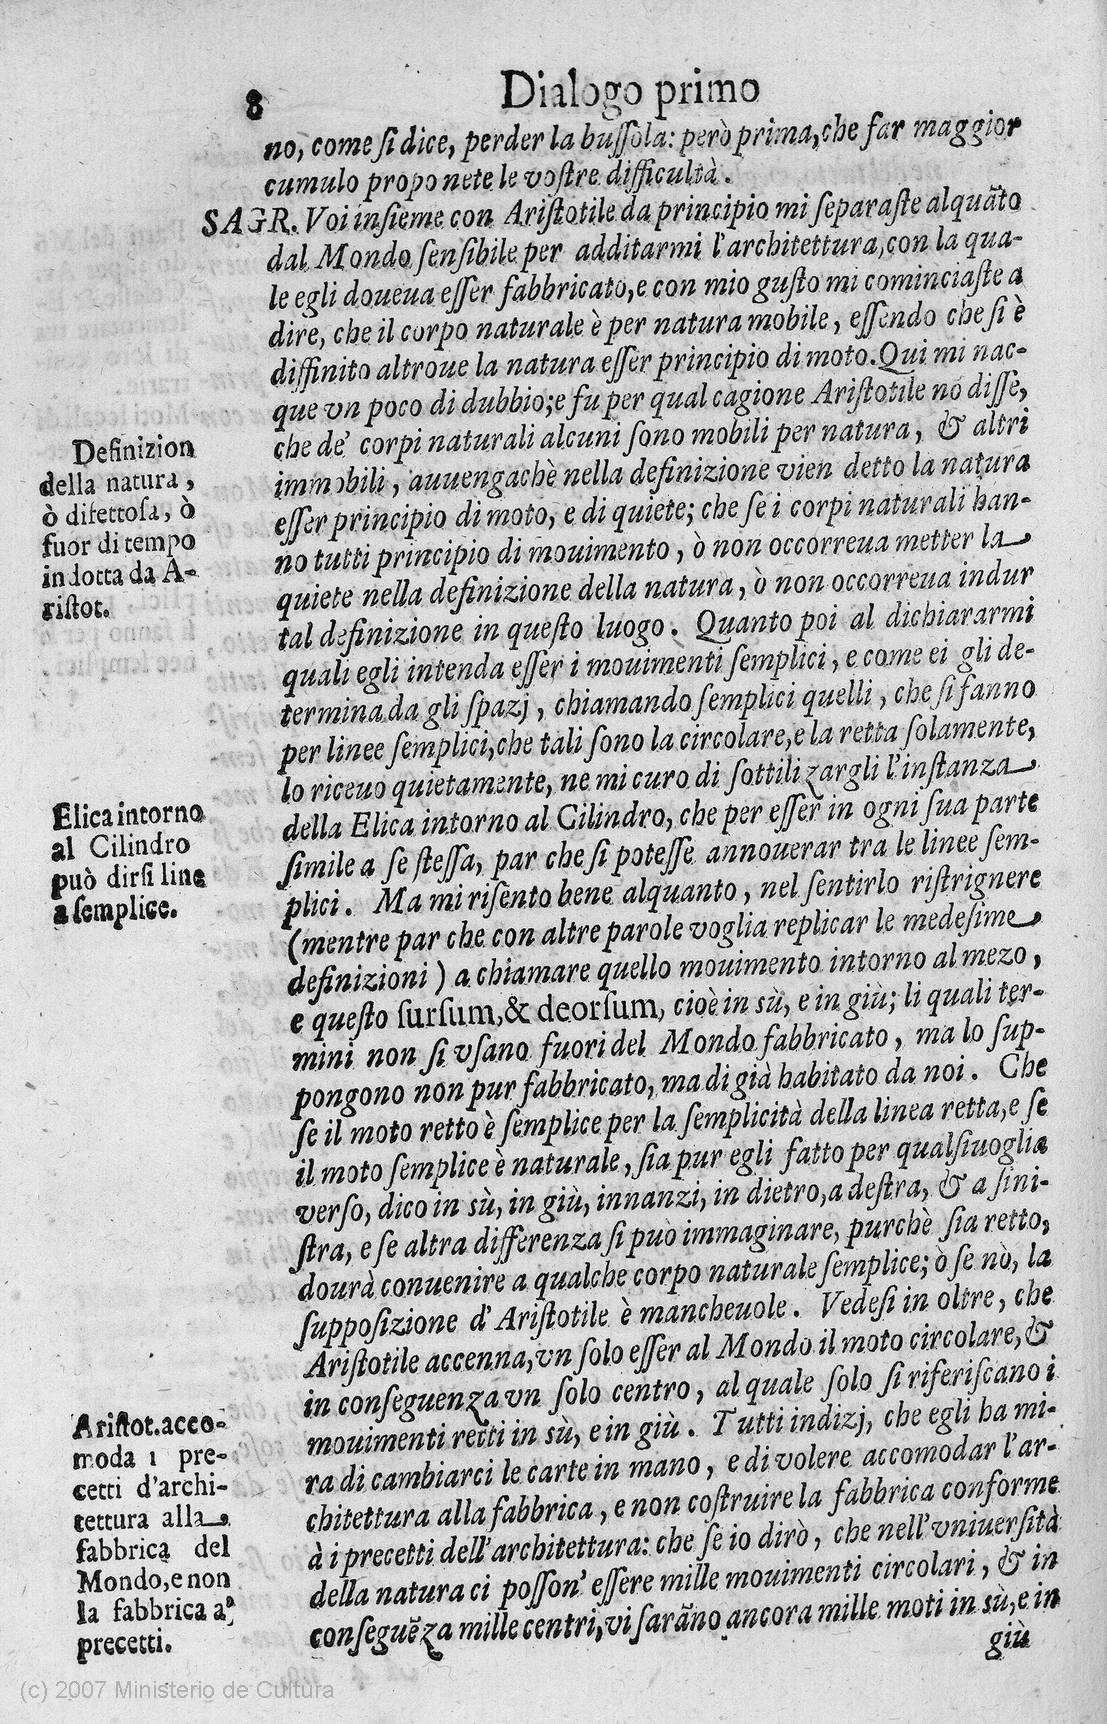 8
Dialogo primo
no, come si dice, perder la bussola: però prima, che far maggior
cumulo proponetele vostre difficultà.
SAGR. Voi insieme con Aristotile da principio mi separaste alquãto
dal Mondo sensibile per additarmi l'architettura, con la qua-
le egli doueua esser fabbricato, e con mio gusto mi cominciaste a
dire, che il corpo naturale è per natura mobile, essendo che si è
diffinito altroue la natura esser principio di moto. Qui mi nac-
que vn poco di dubbio; e fu per qual cagione Aristotile nõ disse,
che de' corpi naturali alcuni sono mobili per natura, & altri
immobili, auuengachè nella definizione vien detto la natura
esser principio di moto, e di quiete; che se i corpi naturali han-
no tutti principio di mouimento, ò non occorreua metter la
quiete nella definizione della natura, ò non occorreua indur
tal definizione in questo luogo. Quanto poi al dichiararmi
quali egli intenda esser i mouimenti semplici, e come ei gli de-
termina da gli spazj, chiamando semplici quelli, che si fanno
per linee semplici, che tali sono la circolare, e la retta solamente,
lo riceuo quietamente, ne mi curo di sottilizargli l'instanza
della Elica intorno al Cilindro, che per esser in ogni sua parte
simile a se stessa, par che si potesse annouerar tra le linee sem-
plici. Ma mi risento bene alquanto, nel sentirlo ristrignere
(mentre par che con altre parole voglia replicar le medesime
definizioni) a chiamare quello mouimento intorno al mezo,
e questo sursum, & deorsum, cioè in sù, e in giù; li quali ter-
mini non si vsano fuori del Mondo fabbricato, ma lo sup-
pongono non pur fabbricato, ma di già habitato da noi. Che
se il moto retto è semplice per la semplicità della linea retta, e se
il moto semplice è naturale, sia pur egli fatto per qualsiuoglia
verso, dico in sù, in giù, innanzi, in dietro, a destra, & a sini-
stra, e se altra differenza si può immaginare, purchè sia retto,
dourà conuenire a qualche corpo naturale semplice; ò se nò, la
supposizione d'Aristotile è mancheuole. Vedesi in oltre, che
Aristotile accenna, vn solo esser al Mondo il moto circolare, &
in conseguenza vn solo centro, al quale solo si riferiscano i
mouimenti retti in sù, e in giù. Tutti indizj, che egli ha mi-
ra di cambiarci le carte in mano, e di volere accomodar l'ar-
chitettura alla fabbrica, e non costruire la fabbrica conforme
à i precetti dell'architettura: che se io dirò, che nell'vniuersità
della natura ci posson' essere mille mouimenti circolari, & in
conseguẽza mille centri, vi sarãno ancora mille moti in sù, e in
giù
Definizion
della natura,
ò difettosa, ò
fuor di tempo
indotta da A-
ristot.
Elica intorno
al Cilindro
può dirsi line
a semplice.
Aristot. acco-
moda i pre-
cetti d'archi-
tettura alla
fabbrica del
Mondo, e non
la fabbrica a'
precetti.
(c) 2007 Ministerio de Cultura